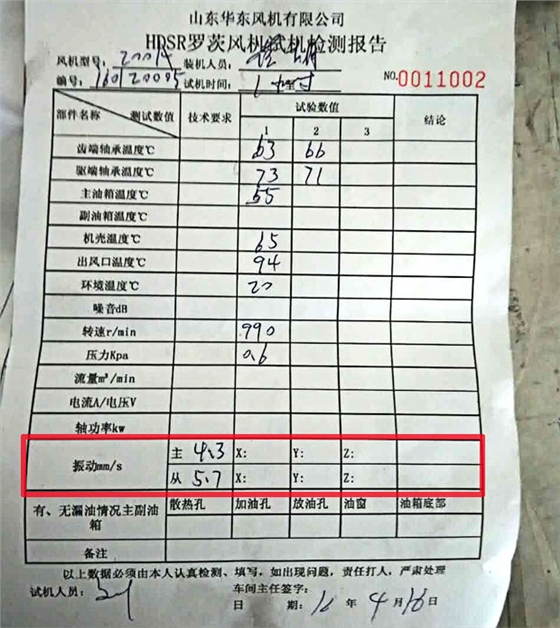 山东华东风机有限公司
HDSR罗茨风机试机检测报告
风机型号: 装机人员:
编号: 试机时间: 1小时 NO.0011002
部件名称 测试数值 技术要求 试验数值 结论
1 2 3
齿端轴承温度℃ 63 66
驱端轴承温度℃ 73 71
主油箱温度℃ 65
副油箱温度℃
机壳温度℃ 65
出风口温度℃ 94
环境温度℃ 20
噪音dB
转速r/min 990
压力Kpa 0.6
流量m³/min
电流A/电压V
轴功率kw
振动mm/s 主 4.3 X: Y: Z:
从 5.7 X: Y: Z:
有、无漏油情况主副油箱 散热孔 加油孔 放油孔 油窗 油箱底部
备注
以上数据必须由本人认真检测、填写，如出现问题，责任打人，严肃处理
试机人员: 车间主任签字:
日 期: 16 年 4 月 16 日